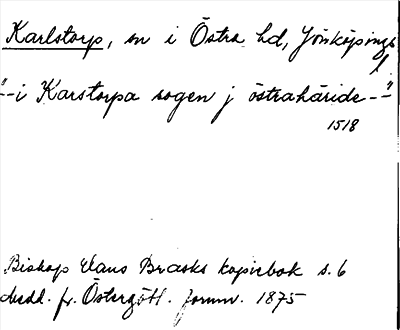 Karlstorp, sn i Östra hd, Jönköpings
l
"--i Karstorpa sogen j östrahäride--"
1518
Biskop Hans Brasks kopiebok s. 6
Medd. fr. Östergötl. fornm. 1875